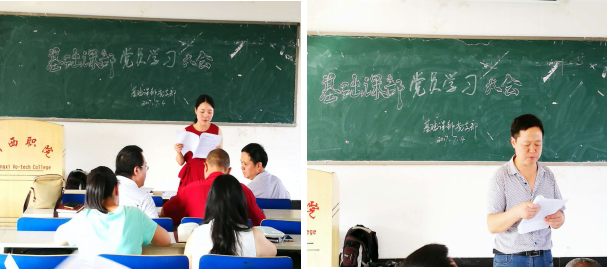 基础课部党员学习大会
基础课部党支部
2017.7.4
西职学
ngxi Vo-tech College
基础课部党员学习大会
基础课部党支部
2017.7.4